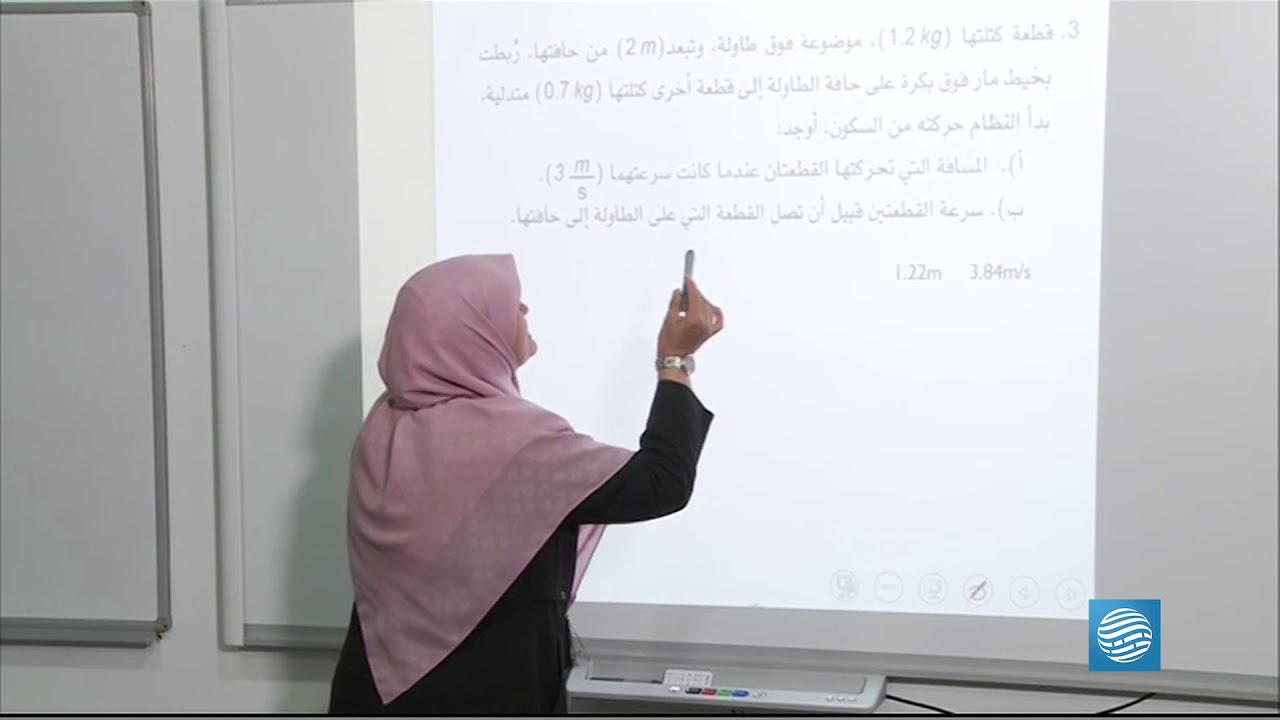 3. قطعة كتلتها (1.2 kg)، موضوعة فوق طاولة، وتبعد (2 m) من حافتها. رُبطت
بخيط مار فوق بكرة على حافة الطاولة إلى قطعة أخرى كتلتها (0.7 kg) متدلية.
بدأ النظام حركته من السكون، أوجد:
أ). المسافة التي تحركتها القطعتان عندما كانت سرعتهما (3 m/s).
ب). سرعة القطعتين قبيل أن تصل القطعة التي على الطاولة إلى حافتها.
1.22m 3.84m/s